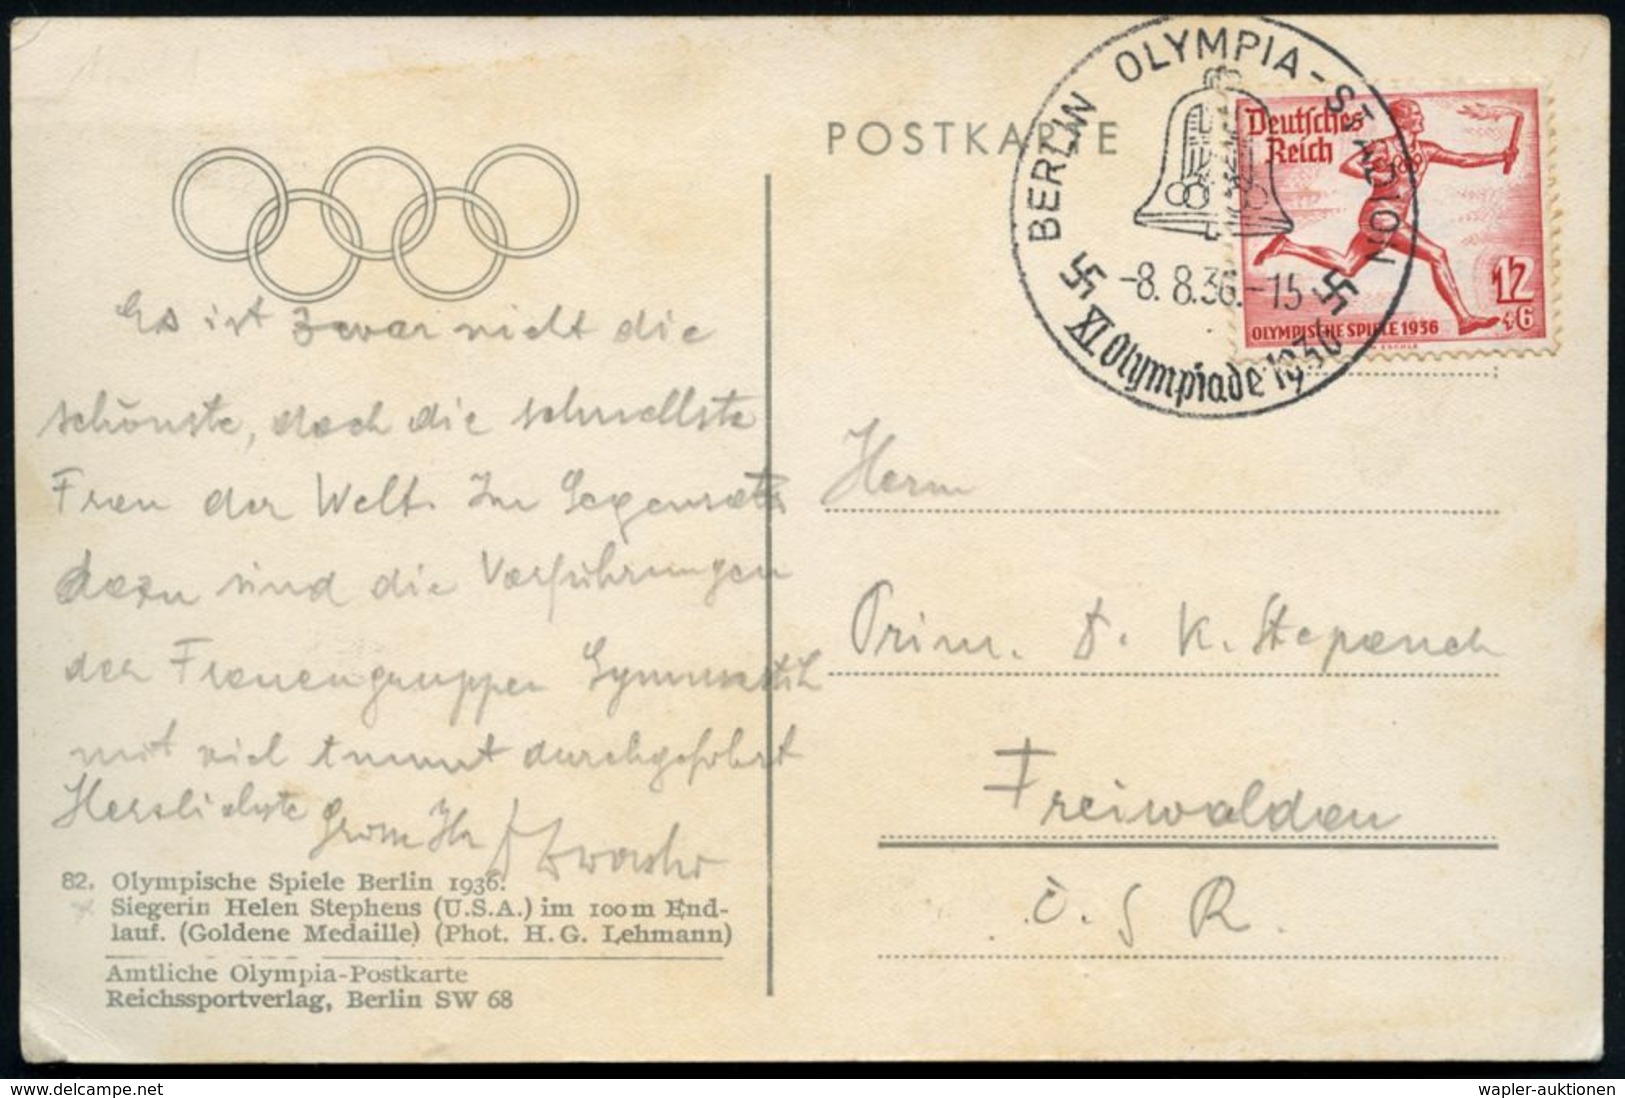 POSTKARTE
BERLIN OLYMPIA-STADION
-8.8.36.-15
XI. Olympiade 1936
Deutsches
Reich
12
+6
OLYMPISCHE SPIELE 1936
Es ist zwar nicht die
schönste, doch die schnellste
Frau der Welt. Im Gegensatz
dazu sind die Vorführungen
der Frauengruppen Gymnastik
mit viel Anmut durchgeführt
Herzlichste
Ihr
Herrn
Prim. D. K. Stepanek
Freiwaldau
Č. S R.
82. Olympische Spiele Berlin 1936.
Siegerin Helen Stephens (U.S.A.) im 100 m End-
lauf. (Goldene Medaille) (Phot. H. G. Lehmann)
Amtliche Olympia-Postkarte
Reichssportverlag, Berlin SW 68
www.delcampe.net
wapler-auktionen